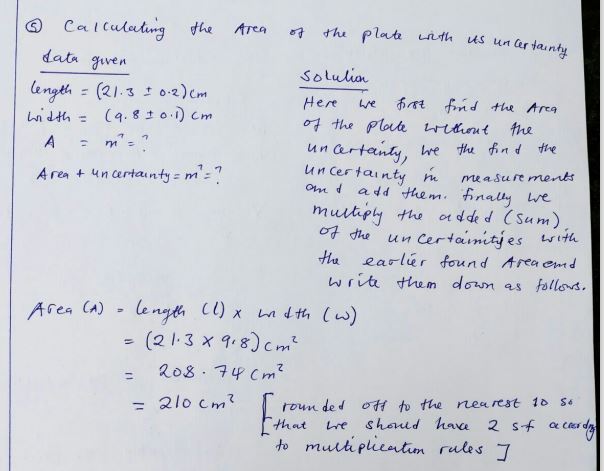 ⑤ Calculating the Area of the plate with its uncertainty
data given
length = (21.3 ± 0.2) cm
width = (9.8 ± 0.1) cm
A = m² = ?
Area + uncertainty = m² = ?
Solution
Here we first find the Area
of the plate without the
uncertainty, we the find the
uncertainty in measurements
and add them. finally we
multiply the added (sum)
of the uncertainities with
the earlier found Area and
write them down as follows.
Area (A) = length (l) x width (w)
= (21.3 x 9.8) cm²
= 208.74 cm²
= 210 cm² [rounded off to the nearest 10 so
that we should have 2 sf according
to multiplication rules]